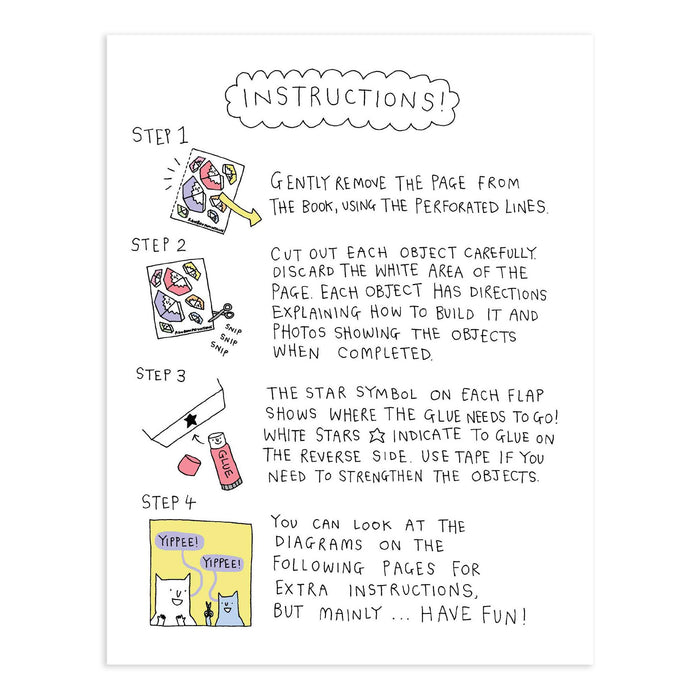 INSTRUCTIONS!
STEP 1
GENTLY REMOVE THE PAGE FROM
THE BOOK, USING THE PERFORATED LINES.
STEP 2
SNIP
SNIP
SNIP
CUT OUT EACH OBJECT CAREFULLY.
DISCARD THE WHITE AREA OF THE
PAGE. EACH OBJECT HAS DIRECTIONS
EXPLAINING HOW TO BUILD IT AND
PHOTOS SHOWING THE OBJECTS
WHEN COMPLETED.
STEP 3
GLUE
THE STAR SYMBOL ON EACH FLAP
SHOWS WHERE THE GLUE NEEDS TO GO!
WHITE STARS ☆ INDICATE TO GLUE ON
THE REVERSE SIDE. USE TAPE IF YOU
NEED TO STRENGTHEN THE OBJECTS.
STEP 4
YIPPEE!
YIPPEE!
YOU CAN LOOK AT THE
DIAGRAMS ON THE
FOLLOWING PAGES FOR
EXTRA INSTRUCTIONS,
BUT MAINLY ... HAVE FUN!